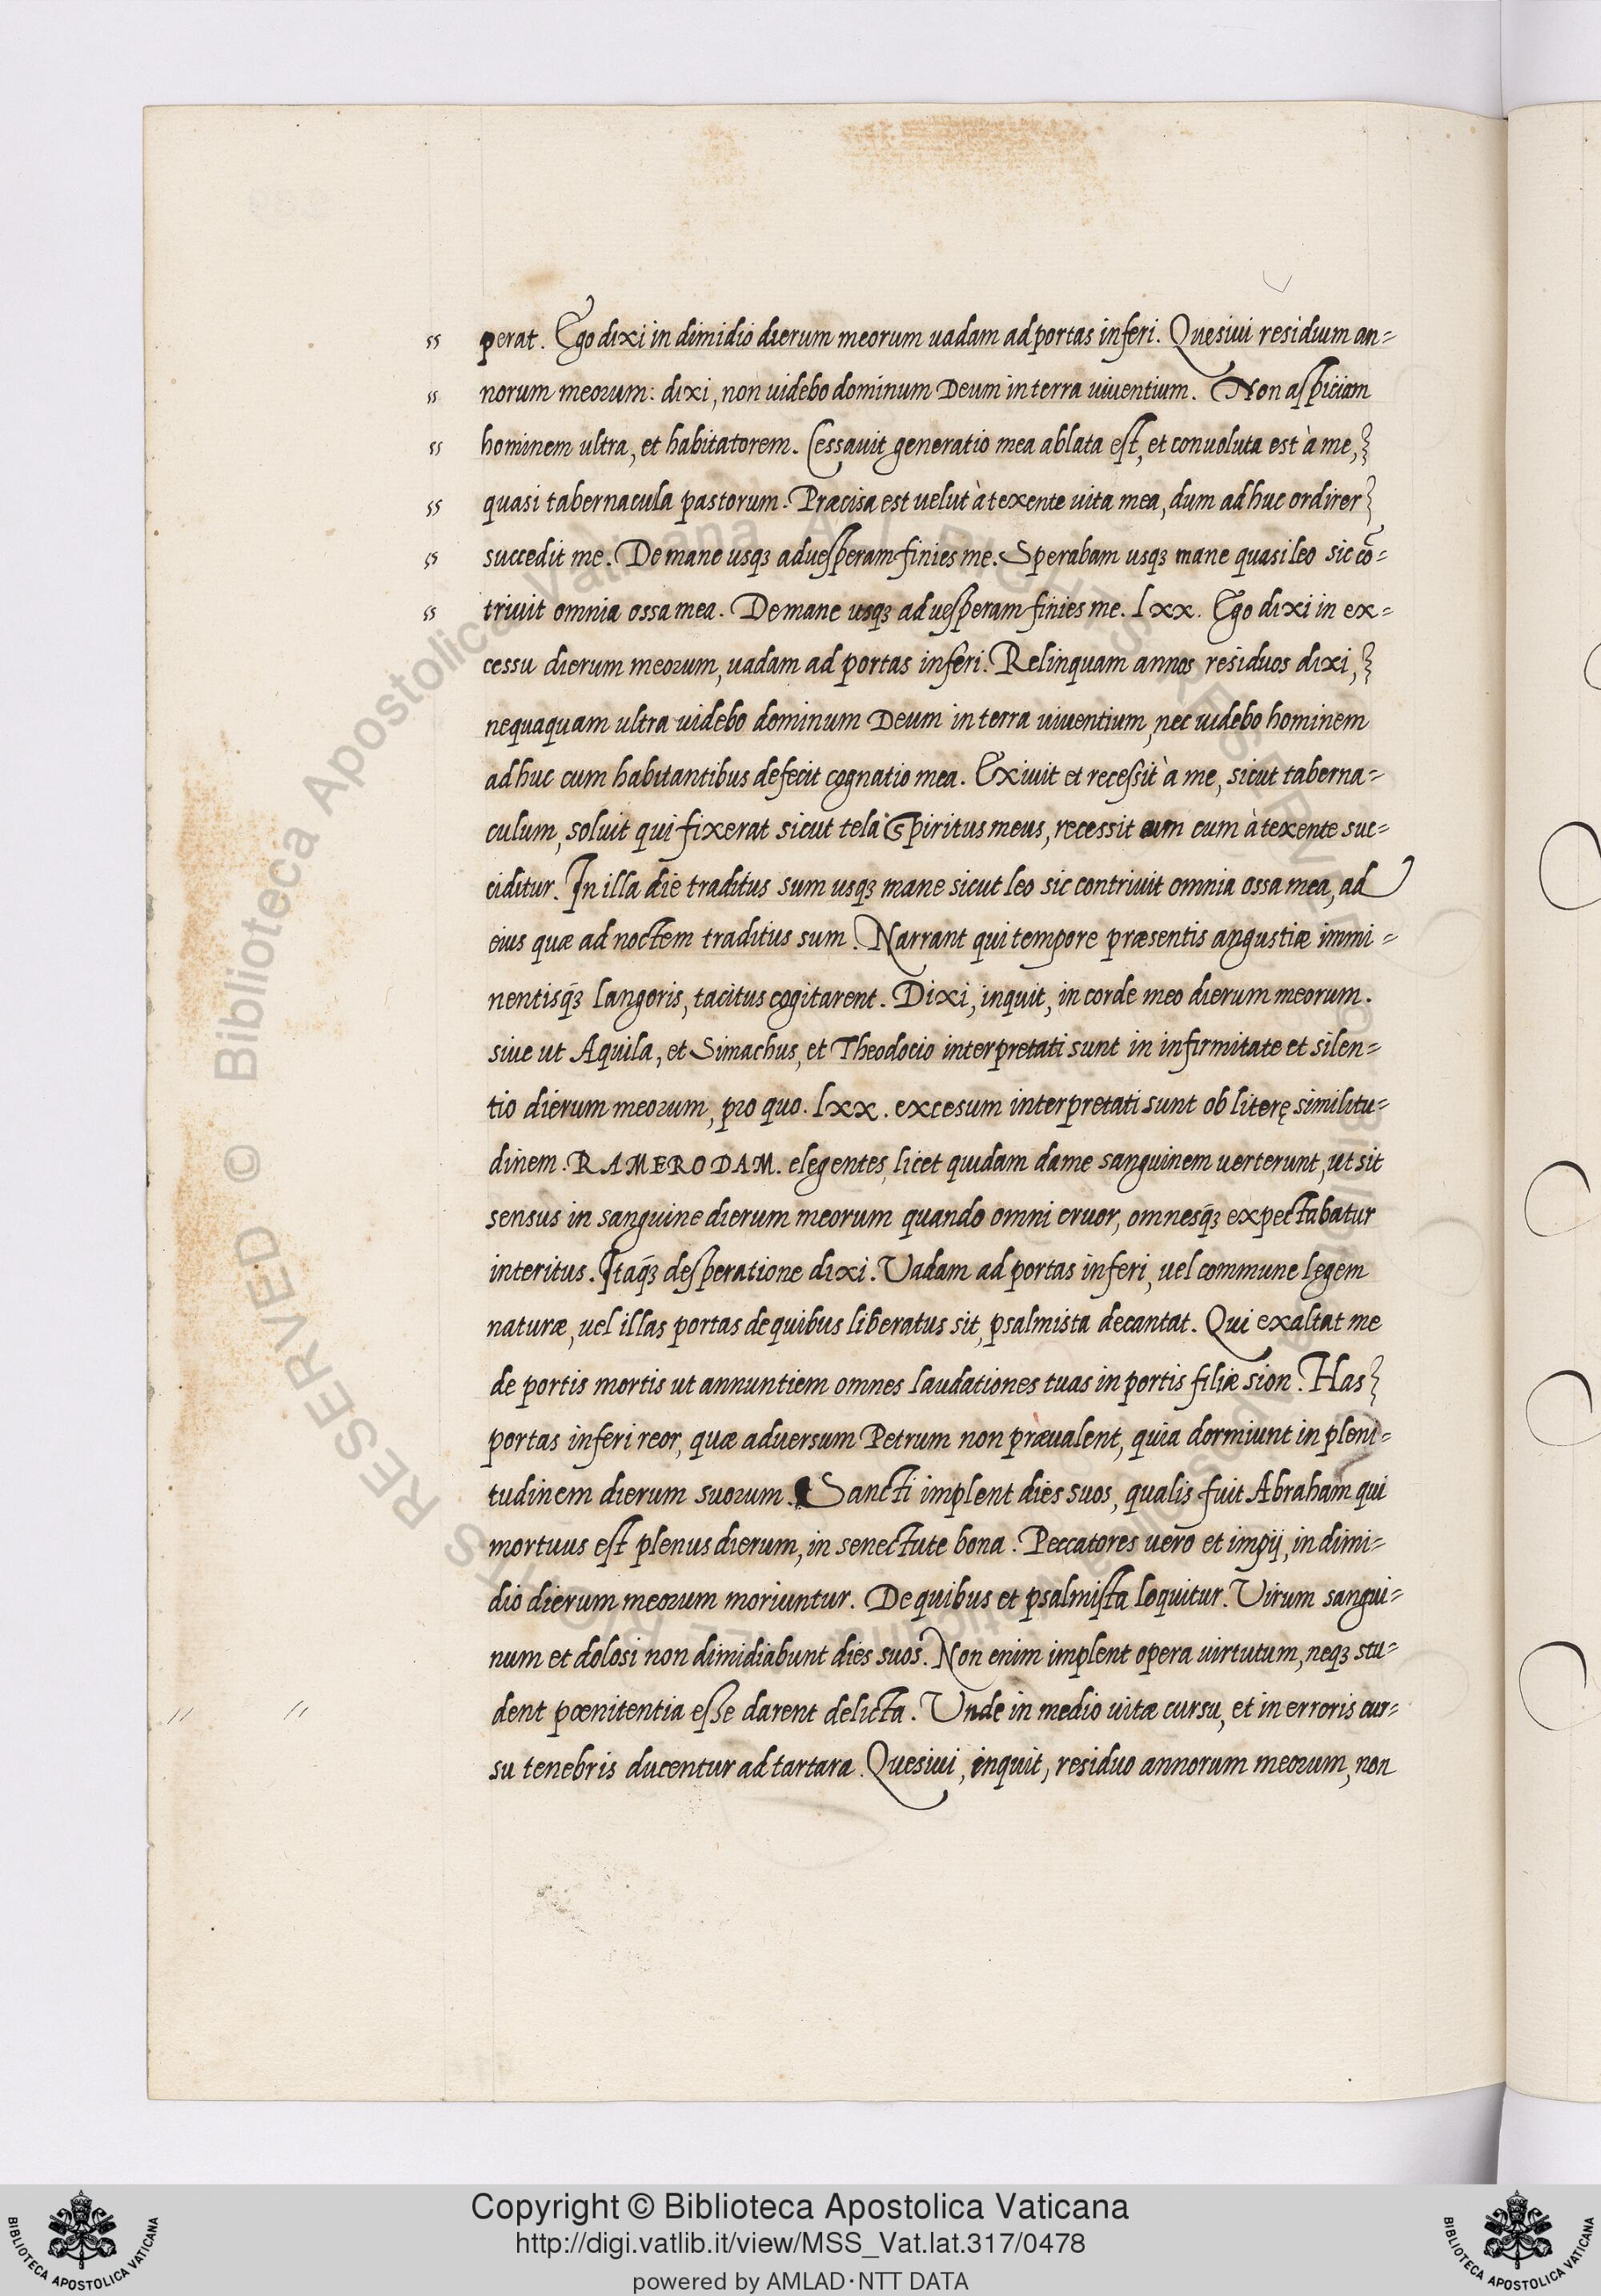 perat. Ego dixi in dimidio dierum meorum uadam ad portas inferi. Quesiui residium an=
norum meorum: dixi, non uidebo dominum Deum in terra uiuentium. Non aspiciam
hominem ultra, et habitatorem. Cessauit generatio mea ablata est, et conuoluta est à me,
quasi tabernacula pastorum. Præcisa est uelut à texente uita mea, dum adhuc ordirer
succedit me. De mane usqȝ ad uesperam finies me. Sperabam usqȝ mane quasi leo sic cō=
triuit omnia ossa mea. De mane usqȝ ad uesperam finies me. lxx. Ego dixi in ex=
cessu dierum meorum, uadam ad portas inferi. Relinquam annos residuos dixi,
nequaquam ultra uidebo dominum Deum in terra uiuentium, nec uidebo hominem
adhuc cum habitantibus defecit cognatio mea. Exiuit et recessit à me, sicut taberna=
culum, soluit qui fixerat sicut tela Spiritus meus, recessit eum cum à texente suc=
ciditur. In illa die traditus sum usqȝ mane sicut leo sic contriuit omnia ossa mea, ad
eius quæ ad noctem traditus sum. Narrant qui tempore præsentis angustiæ immi=
nentisqȝ langoris, tacitus cogitarent. Dixi, inquit, in corde meo dierum meorum.
siue ut Aquila, et Simachus, et Theodocio interpretati sunt in infirmitate et silen=
tio dierum meorum, pro quo. lxx. excesum interpretati sunt ob literę similitu=
dinem. RAMERODAM. elegentes, licet quidam dame sanguinem uerterunt, ut sit
sensus in sanguine dierum meorum quando omni cruor, omnesqȝ expectabatur
interitus. Itaqȝ desperatione dixi. Vadam ad portas inferi, uel commune legem
naturæ, uel illas portas de quibus liberatus sit, psalmista decantat. Qui exaltat me
de portis mortis ut annuntiem omnes laudationes tuas in portis filiæ sion. Has
portas inferi reor, quæ aduersum Petrum non præualent, quia dormiunt in pleni=
tudinem dierum suorum. Sancti implent dies suos, qualis fuit Abraham qui
mortuus est plenus dierum, in senectute bona. Peccatores uero et impij, in dimi=
dio dierum meorum moriuntur. De quibus et psalmista loquitur. Virum sangui=
num et dolosi non dimidiabunt dies suos. Non enim implent opera uirtutum, neqȝ stu=
dent pœnitentia esse darent delicta. Vnde in medio uitæ cursu, et in erroris cur=
su tenebris ducentur ad tartara. Quesiui, inquit, residuo annorum meorum, non
Copyright © Biblioteca Apostolica Vaticana
http://digi.vatlib.it/view/MSS_Vat.lat.317/0478
powered by AMLAD·NTT DATA
BIBLIOTECA APOSTOLICA VATICANA
BIBLIOTECA APOSTOLICA VATICANA